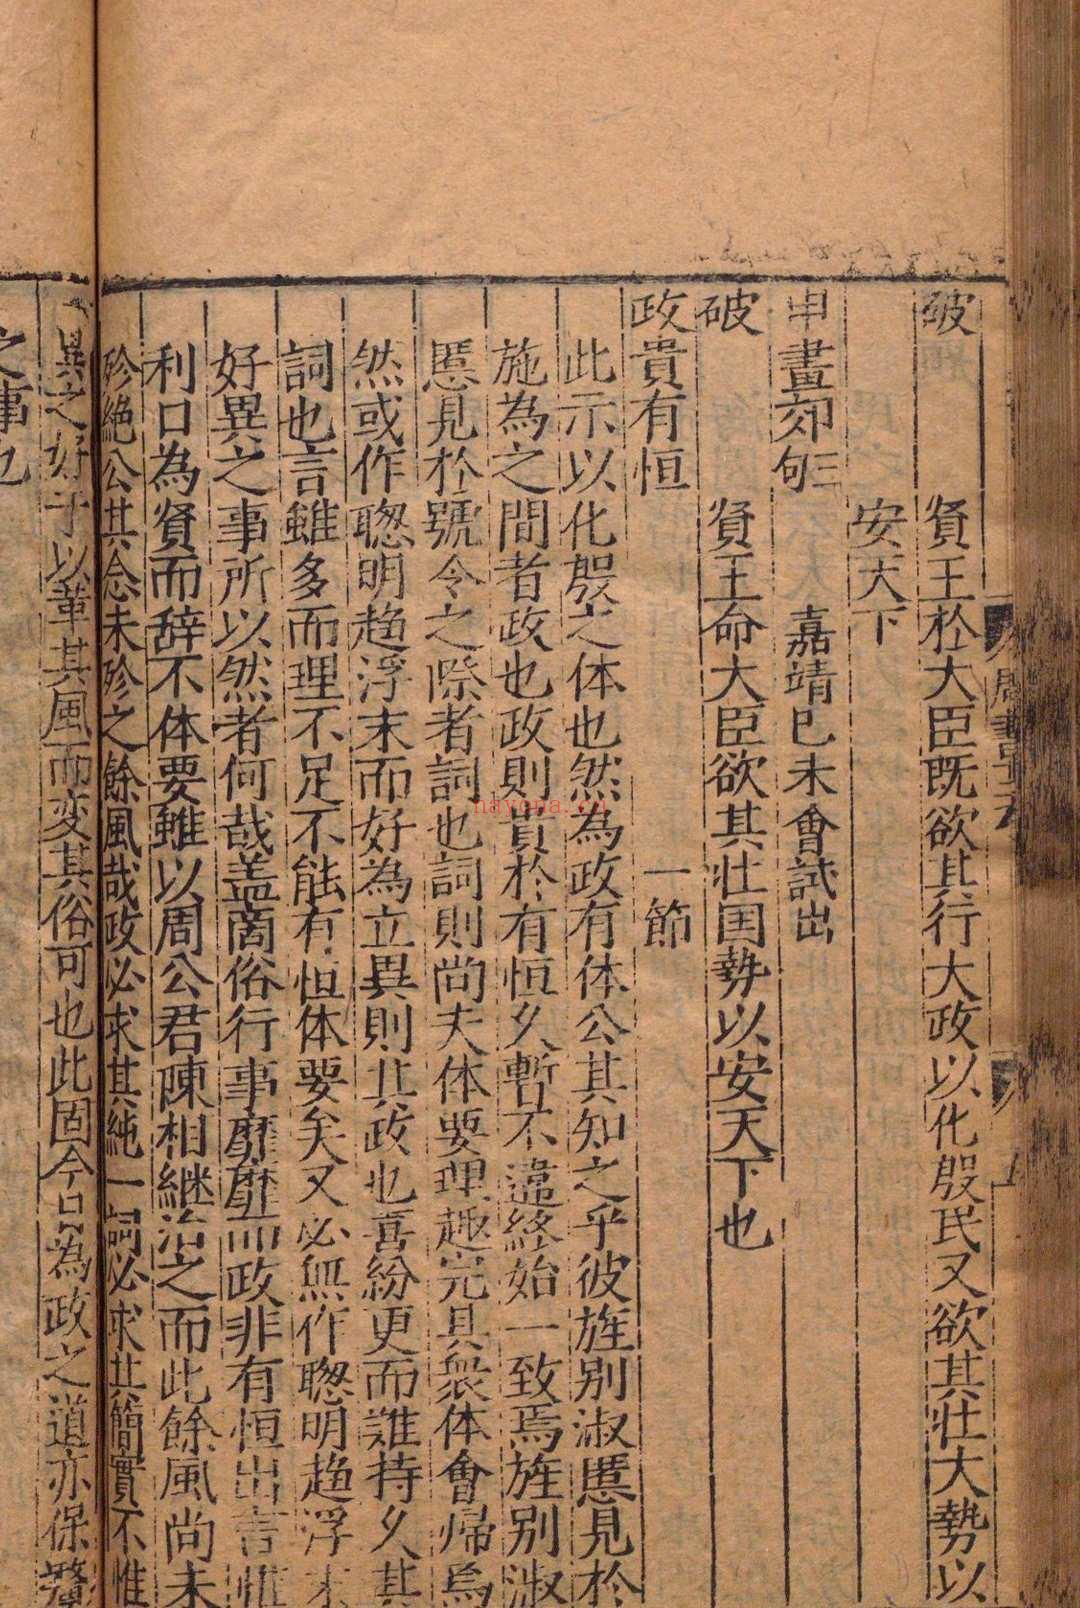 破　賢王於大臣既欲其行大政以化殷民又欲其壮大勢以
安天下
申畫郊三句　嘉靖已未會試出
破　賢王命大臣欲其壮国勢以安天下也
政貴有恒　一節
此示以化殷之体也然為政有体公其知之乎彼旌别淑慝見於
施為之間者政也政則貴於有恒久暫不違終始一致焉旌别淑
慝見於號令之際者詞也詞則尚夫体要理趣完具衆体會帰焉
然或作聰明趋浮末而好為立異則其政也喜紛更而難持久其
詞也言雖多而理不足不能有恒体要矣又必無作聰明趋浮末
好異之事所以然者何哉盖商俗行事靡靡而政非有恒出言惟
利口為賢而辞不体要雖以周公君陳相継治之而此餘風尚未
殄絶公其念未殄之餘風哉政必求其純一詞必求其簡實不惟
異之好于以革其風而変其俗可也此固今日為政之道亦保釐
之事也
周書
nayona.cn